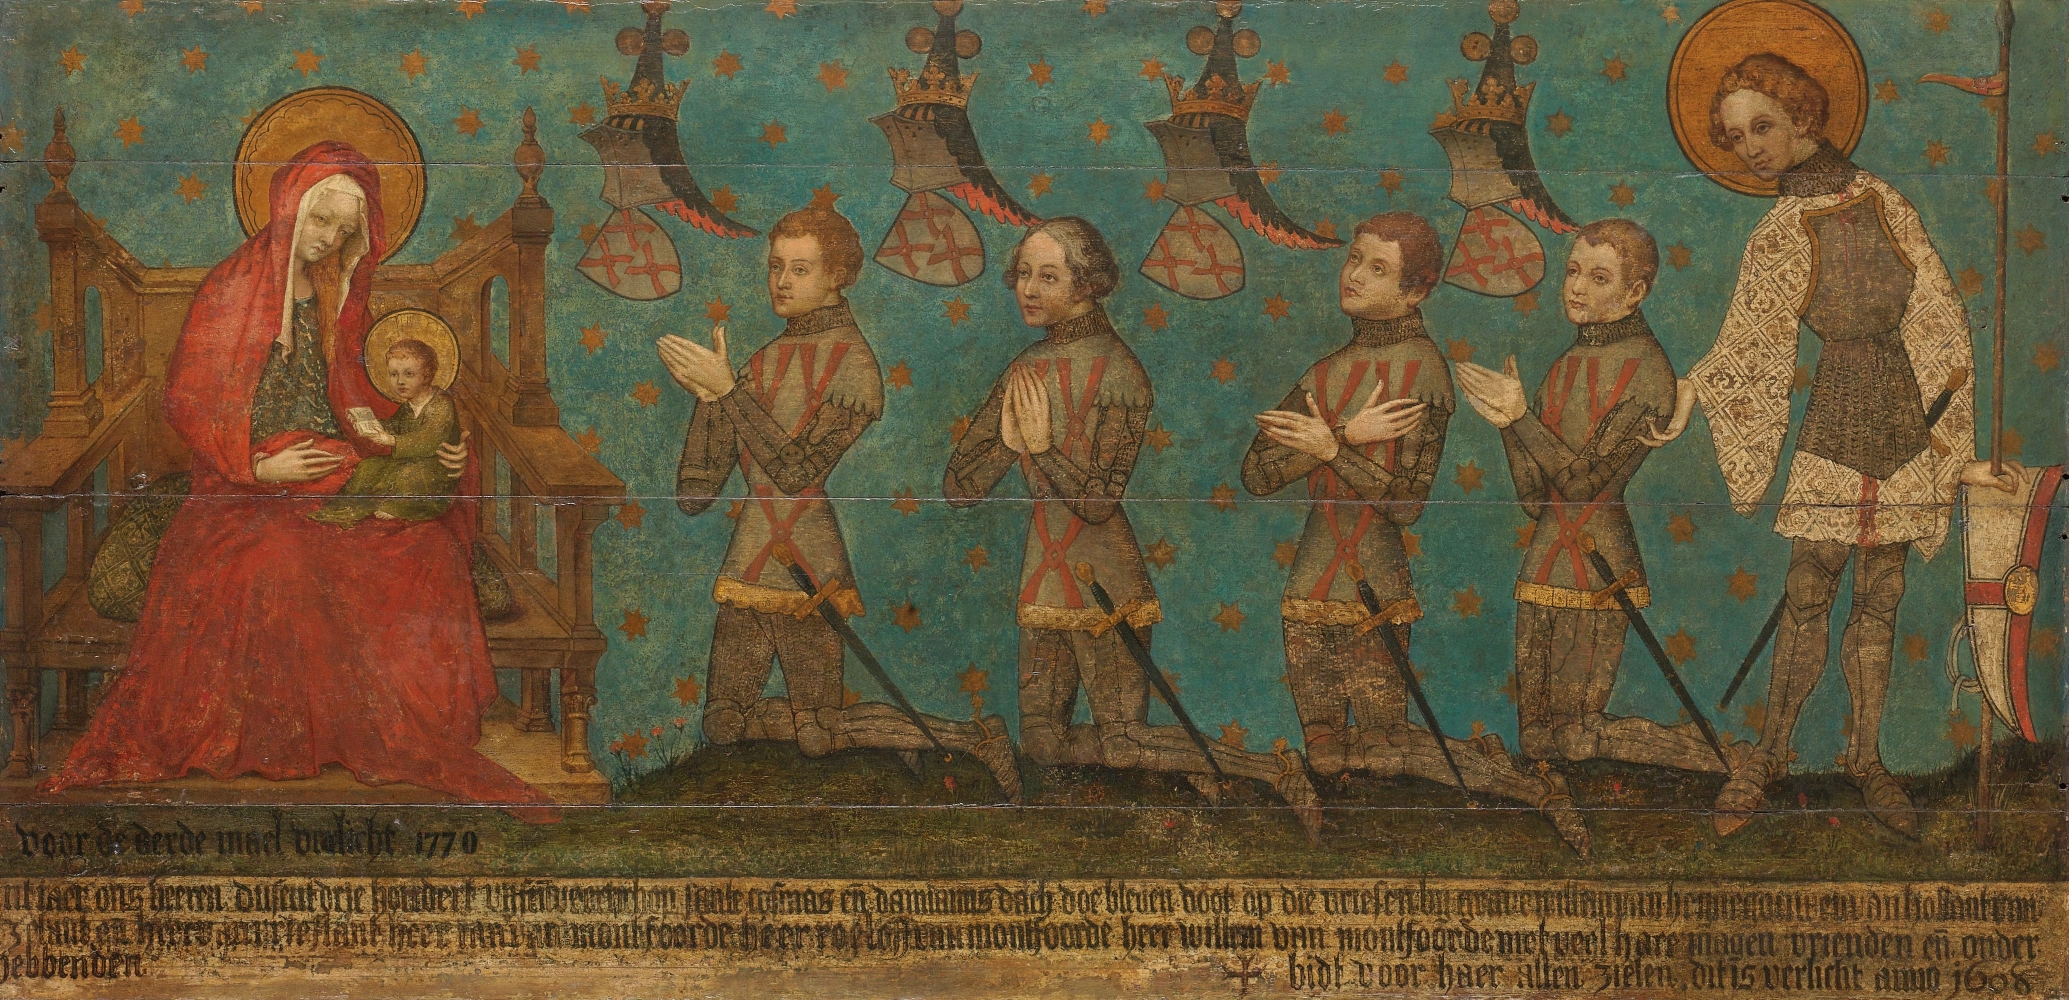 voor de derde mael vrolicht 1770
int iaer ons heeren dusent drie hondert en veertich op sante cosmas en damianus dach doe bleven doot op die vriesen by grave willem van henegouwen van hollant van
zelant en heer van vrieslant heer ian van montfoorde heer roeloff van montfoorde heer willem van montfoorde met veel hare magen vrienden en onder
hebbenden
bidt voor haer allen zielen, dit is verlicht anno 1608